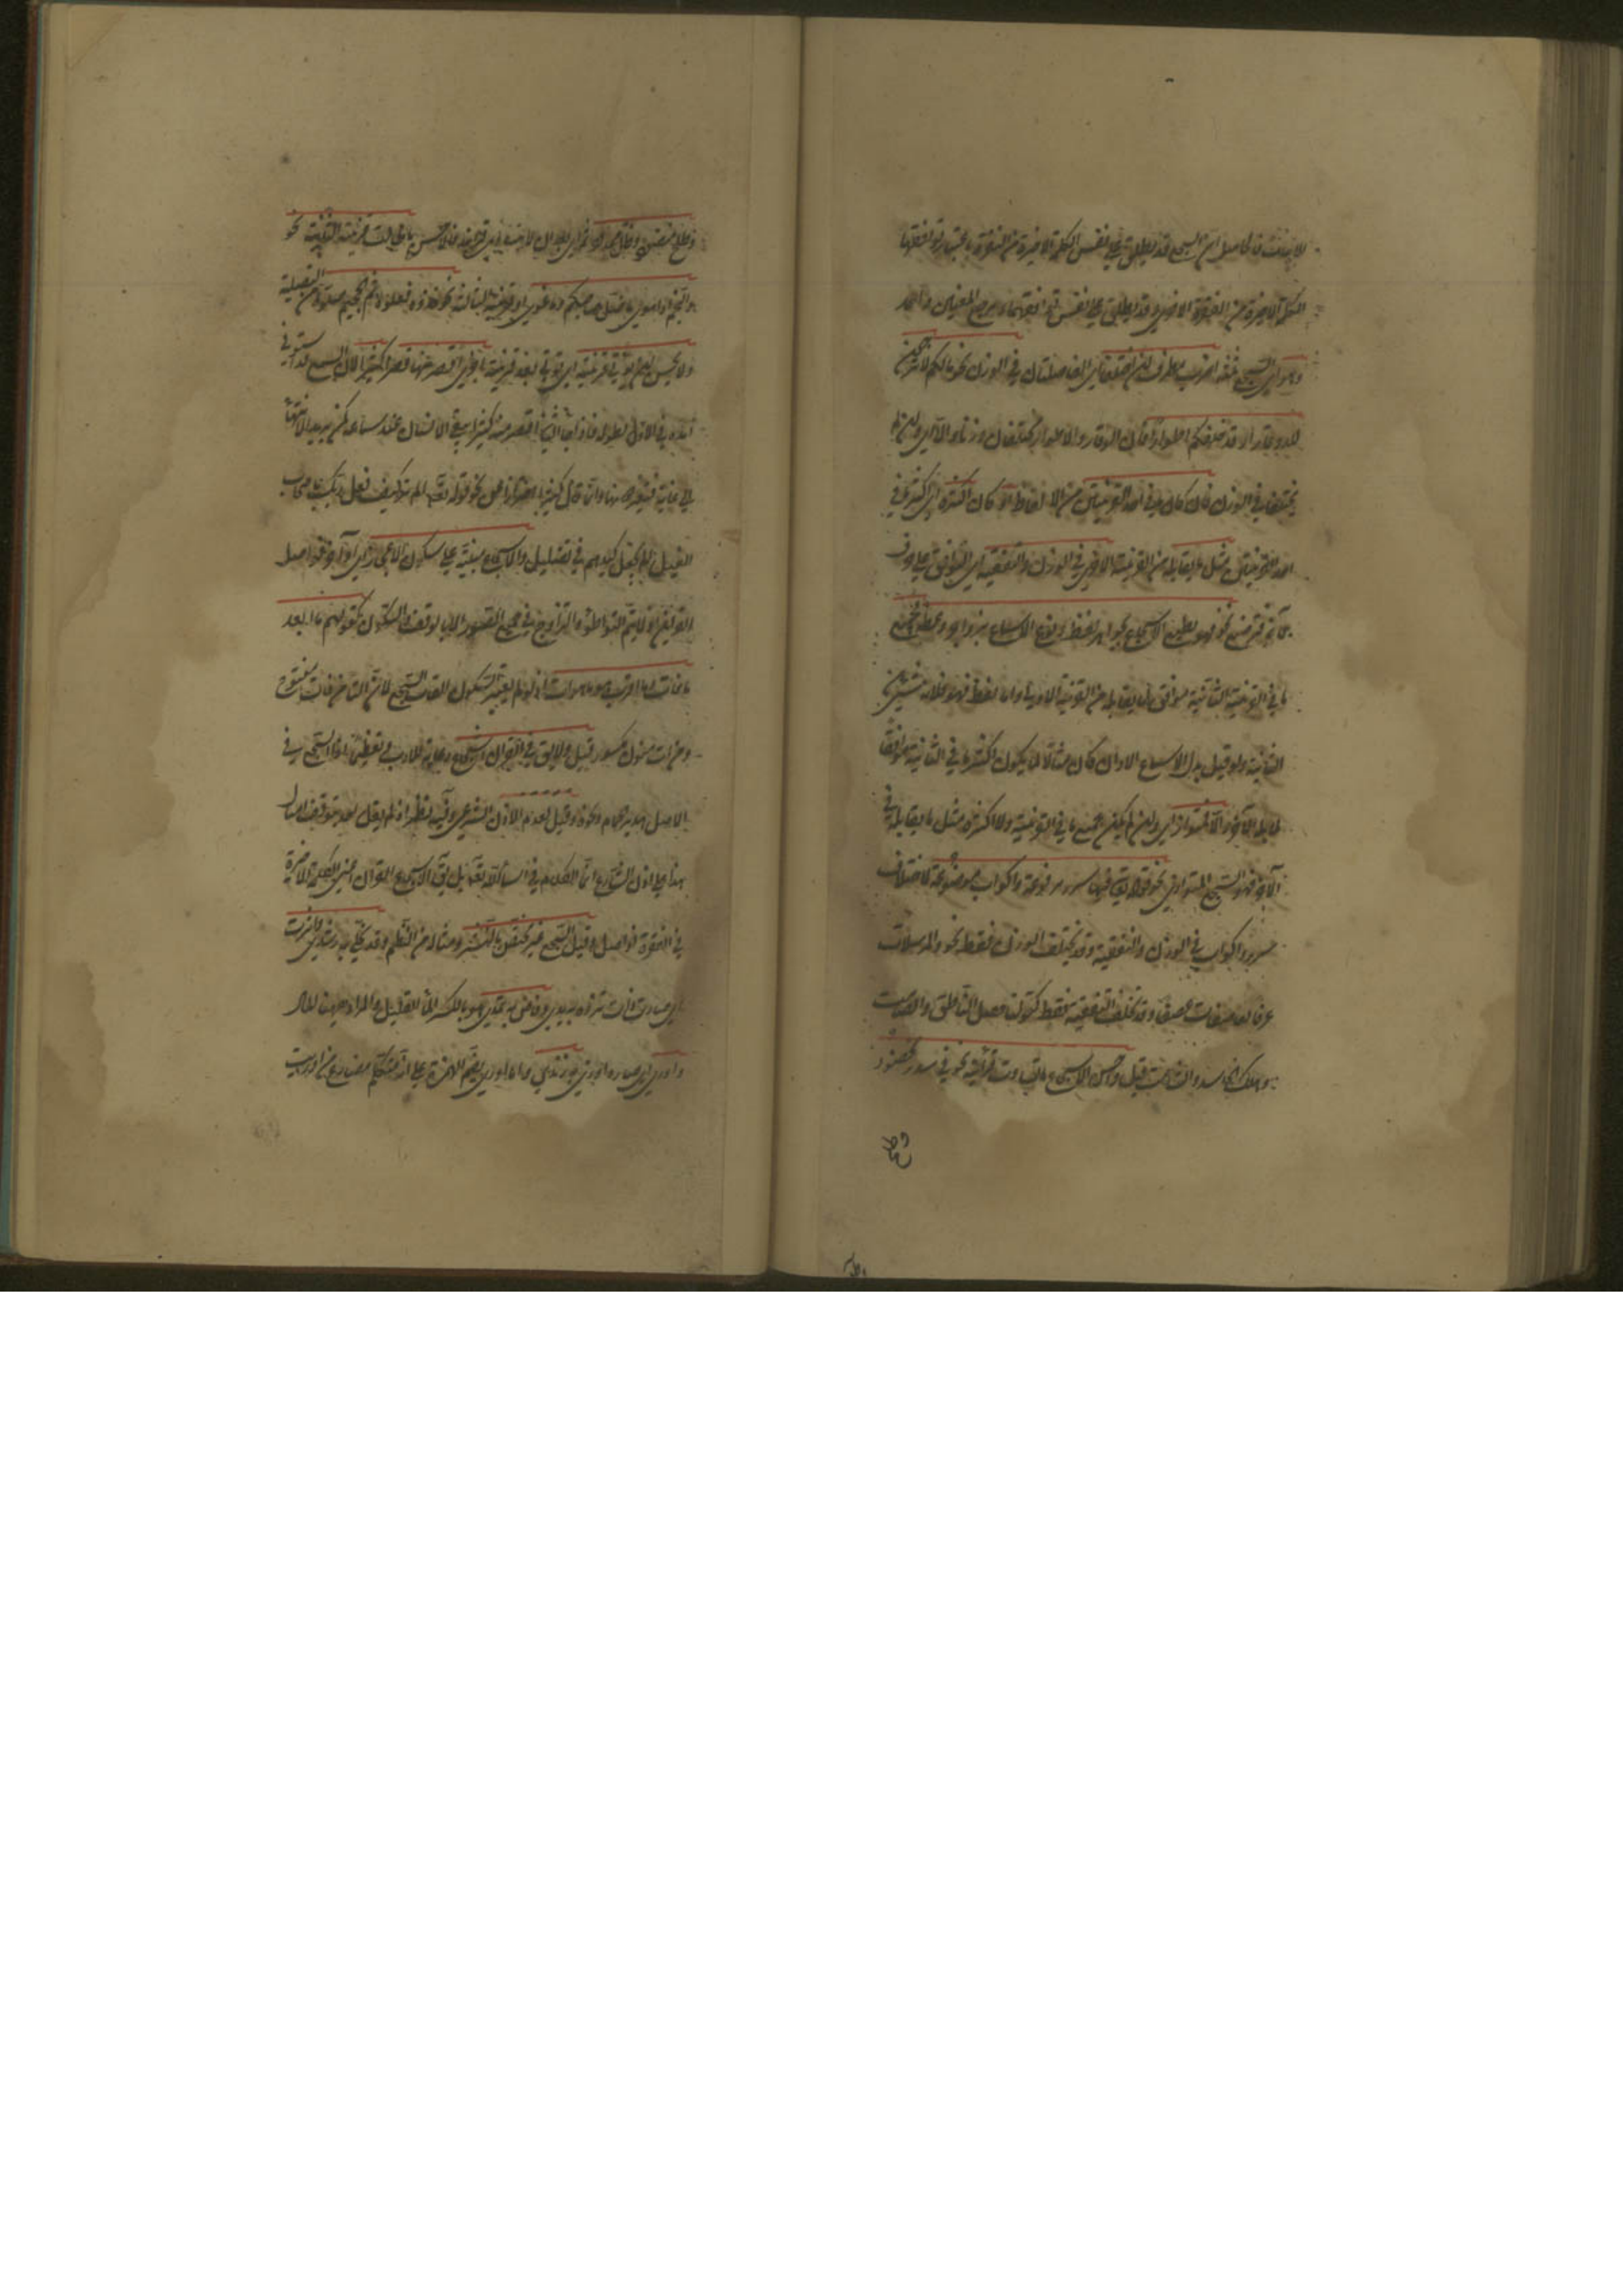 للابيات فالحاصل ان السجع قد يطلق على نفس الكلمة الاخيرة من الفقرة باعتبار توافقها
الكلمة الاخيرة من الفقرة الاخرى وقد يطلق على نفس توافقهما ومرجع المعنيين واحد
وهو اى السجع ثلثة اضرب مطرف ان اختلفتا اى الفاصلتان فى الوزن نحو مالكم لا ترجون
لله وقارا وقد خلقكم اطوارا فان الوقار والاطوار مختلفان وزنا والا اى وان لم
يختلفا فى الوزن فان كان ما فى احد القرينتين من الالفاظ او كان اكثره اى اكثر ما فى
احد القرينتين مثل ما يقابله من القرينة الاخرى فى الوزن والتقفية اى التوافق على حرف
الآخر فترصيع نحو فهو يطبع الاسجاع بجواهر لفظه ويقرع الاسماع بزواجر وعظه فجميع
ما فى القرينة الثانية موافق لما يقابله من القرينة الاولى واما لفظ فهو فلا يقابله شئ من
الثانية ولو قيل بدل الاسماع الاذان كان مثالا لما يكون اكثر ما فى الثانية موافقا
لما يقابله والا فمتواز اى وان لم يكن جميع ما فى القرينة ولا اكثره مثل ما يقابله من
الاخرى فهو السجع المتوازى نحو قوله تعالى فيها سرر مرفوعة واكواب موضوعة لاختلاف
سرر واكواب فى الوزن والتقفية وقد يختلف الوزن فقط نحو والمرسلات
عرفا فالعاصفات عصفا وقد تختلف التقفية فقط كقولنا حصل الناطق والصامت
وهلك الحاسد والشامت قيل واحسن السجع ما تساوت قرائنه نحو فى سدر مخضود
وطلح منضود وظل ممدود ثم اى بعد ان لا يتساوى قرائنه فالاحسن ما طالت قرينته الثانية نحو
والنجم اذا هوى ما ضل صاحبكم وما غوى او قرينته الثالثة نحو خذوه فغلوه ثم الجحيم صلوه من التصلية
ولا يحسن ان يؤتى قرينة اى يؤتى بعد قرينة بقرينة اخرى اقصر منها قصرا كثيرا لان السجع قد استوفى
امده فى الاول بطوله فاذا جاء الثانى اقصر منه كثيرا يبقى الانسان عند سماعه كمن يريد الانتهاء
الى غاية فيعثر دونها وانما قال كثيرا احترازا عن نحو قوله تعالى الم تر كيف فعل ربك باصحاب
الفيل الم يجعل كيدهم فى تضليل والاسجاع مبنية على سكون الاعجاز اى اواخر فواصل
القرائن اذ لا يتم التواطؤ والتزاوج فى جميع الصور الا بالوقف والسكون كقولهم ما ابعد
ما فات وما اقرب ما هو آت اذ لو لم يعتبر السكون لفات السجع لان التاء من فات مفتوح
ومن آت منون مكسور قيل ولا يقال فى القران اسجاع رعاية للادب وتعظيما اذ السجع فى
الاصل هدير الحمام ونحوه وقيل لعدم الاذن الشرعى وفيه نظر اذ لم يقل احد بتوقف امثال
هذا على اذن الشارع انما الكلام فى اسماء الله تعالى بل يقال للاسجاع فى القران اعنى الكلمة الاخيرة
من الفقرة فواصل وقيل السجع غير مختص بالنثر ومثاله من النظم قوله تجلى به رشدى واثرت
اى صارت ذات ثروة به يدى وفاض به ثمدى هو بالكسر الماء القليل والمراد ههنا المال
واورى اى صار ذا ورى به زندى واما اورى بضم الهمزة على انه متكلم مضارع من اوريت